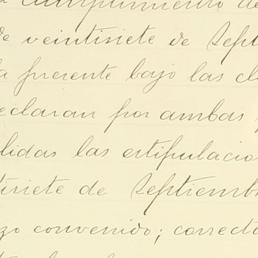 cumplimiento de
de veintisiete de Septi
la presente bajo las cl
eclaran por ambas
lidas las estipulacio
tisiete de Septiembr
zo convenido; correcta